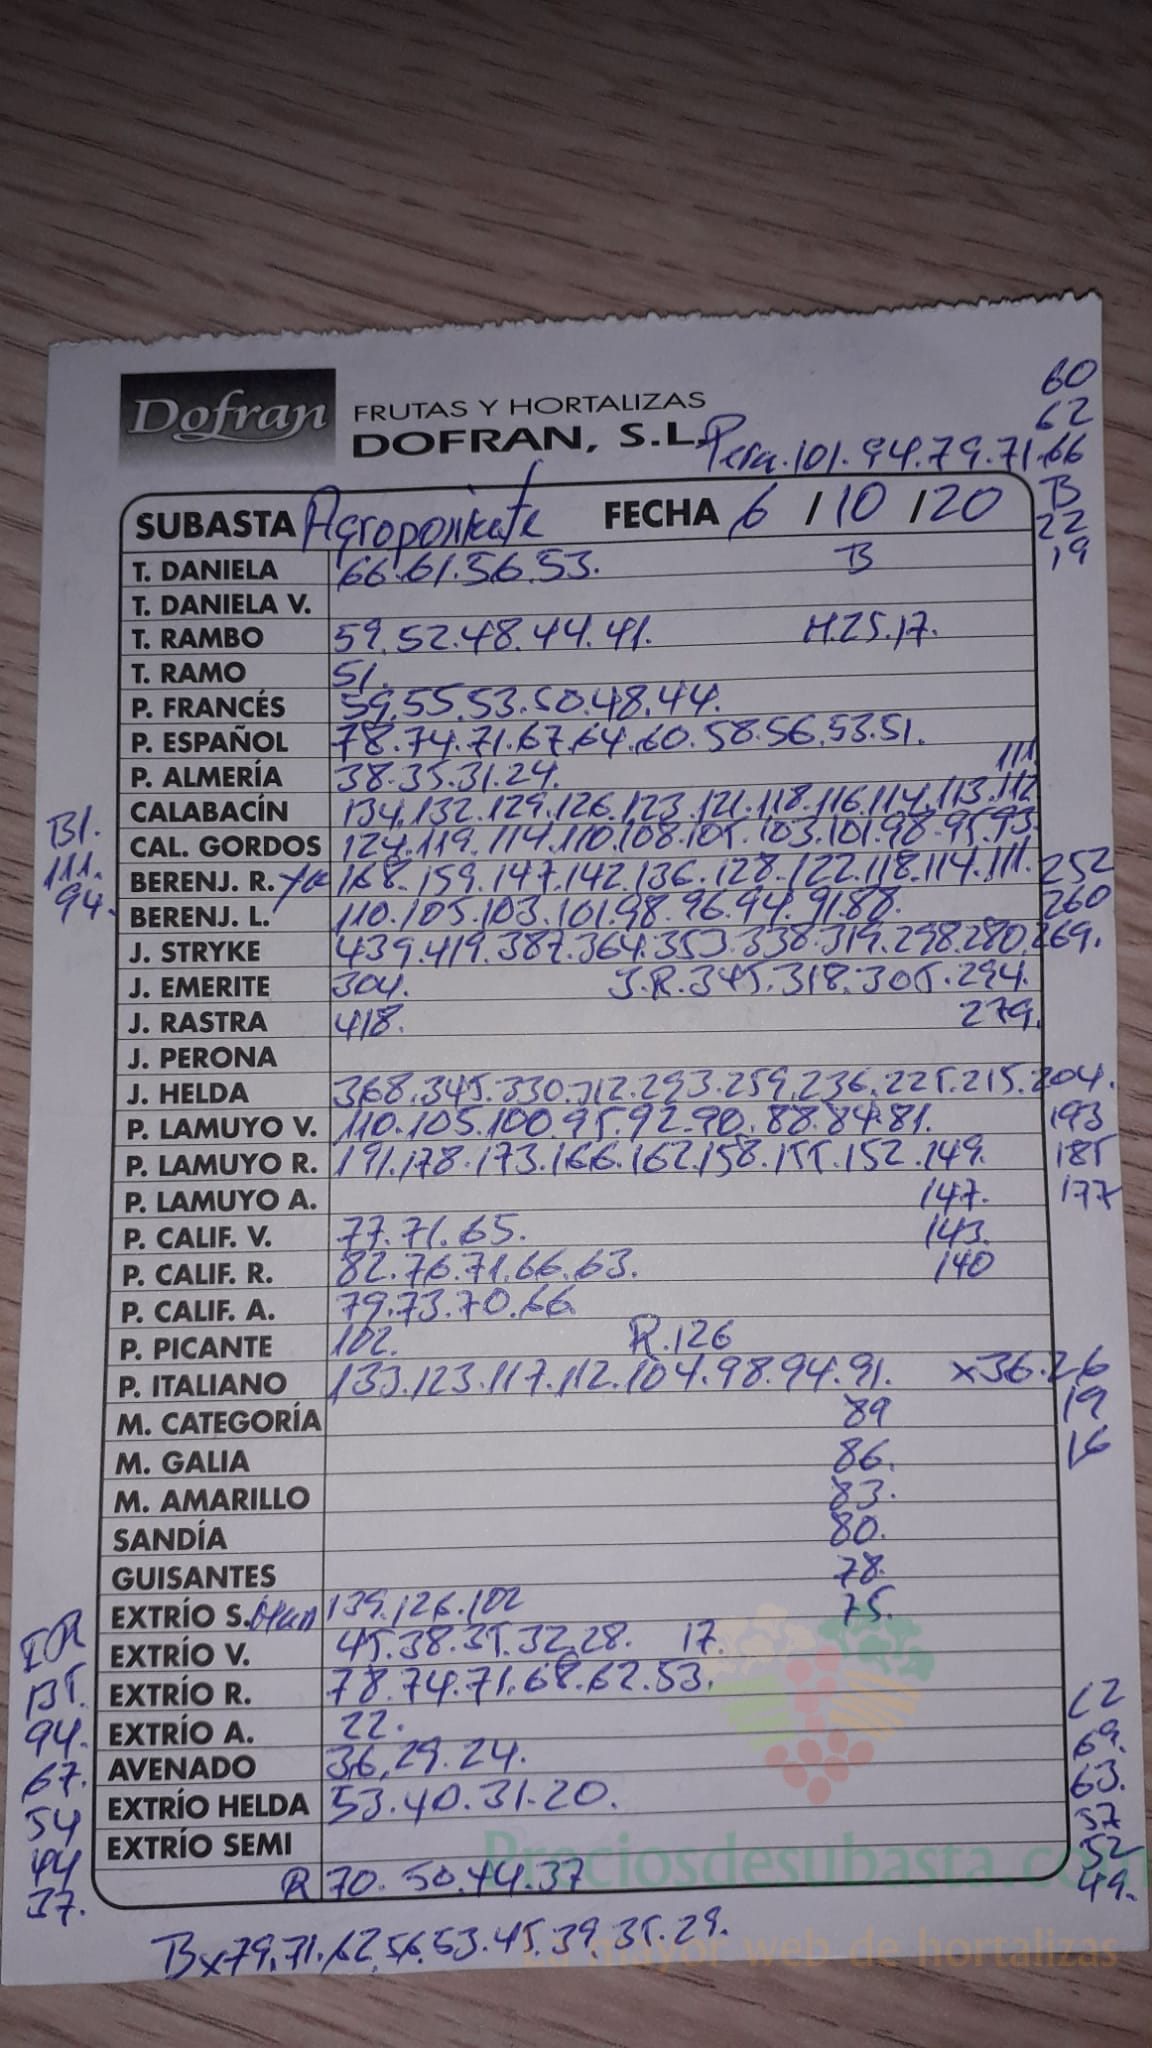 Dofran FRUTAS Y HORTALIZAS
DOFRAN, S.L.
60
62
Pera.101.94.79.71.66
B
22
19
SUBASTA Agroponiente FECHA 6/10/20
T. DANIELA 66.61.56.53. B
T. DANIELA V.
T. RAMBO 59.52.48.44.41. H.25.17.
T. RAMO 51.
P. FRANCÉS 59.55.53.50.48.44.
P. ESPAÑOL 78.74.71.67.64.60.58.56.53.51.
P. ALMERÍA 38.35.31.24. 111
CALABACÍN 134.132.129.126.123.121.118.116.114.113.112
Bl. CAL. GORDOS 124.119.114.110.108.105.103.101.98.95.93.
111. BERENJ. R. 168.159.147.142.136.128.122.118.114.111. 252
94. BERENJ. L. 110.105.103.101.98.96.94.91.88. 260
J. STRYKE 439.419.387.364.353.338.319.298.280.269.
J. EMERITE 304. J.R.345.318.305.294.
J. RASTRA 418. 279.
J. PERONA
J. HELDA 368.345.330.312.293.259.236.225.215.204.
P. LAMUYO V. 110.105.100.95.92.90.88.84.81. 193
P. LAMUYO R. 191.178.173.166.162.158.155.152.149. 185
P. LAMUYO A. 147. 177
P. CALIF. V. 77.71.65. 143.
P. CALIF. R. 82.76.71.66.63. 140
P. CALIF. A. 79.73.70.66.
P. PICANTE 102. R.126
P. ITALIANO 133.123.117.112.104.98.94.91. x36.26
M. CATEGORÍA 89 19
M. GALIA 86. 16
M. AMARILLO 83.
SANDÍA 80.
GUISANTES 78.
EXTRÍO S. 139.126.102 75.
EXTRÍO V. 45.38.35.32.28. 17.
EXTRÍO R. 78.74.71.68.62.53.
94. EXTRÍO A. 22. 69.
67. AVENADO 36.29.24. 63.
54 EXTRÍO HELDA 53.40.31.20. 57
44 EXTRÍO SEMI 52
37. R 70.50.44.37 49.
Bx79.71.62.56.53.45.39.35.29.
Preciosdesubasta.com
La mayor web de hortalizas